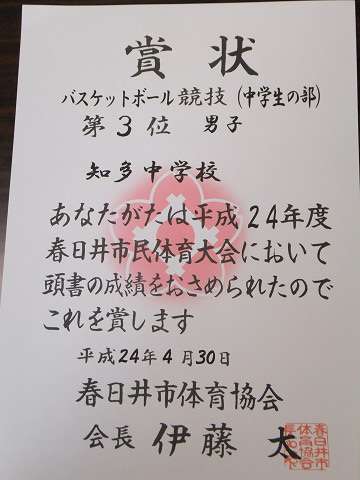 賞状
バスケットボール競技(中学生の部)
第3位 男子
知多中学校
あなたがたは平成24年度
春日井市民体育大会において
頭書の成績をおさめられたので
これを賞します
平成24年4月30日
春日井市体育協会
会長 伊藤 太